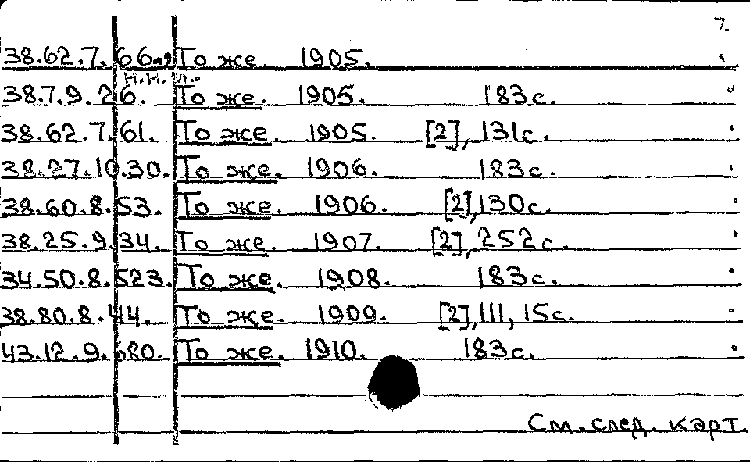 7.
38.62.7.66 То же. 1905.
н.н.
38.7.9.26. То же. 1905. 183с.
38.62.7.61. То же. 1905. [2], 131с.
38.27.10.30. То же. 1906. 183с.
38.60.8.53. То же. 1906. [2], 130с.
38.25.9.34. То же. 1907. [2], 252с.
34.50.8.523. То же. 1908. 183с.
38.80.8.44. То же. 1909. [2], 111, 15с.
43.12.9.680. То же. 1910. 183с.
См. след. карт.